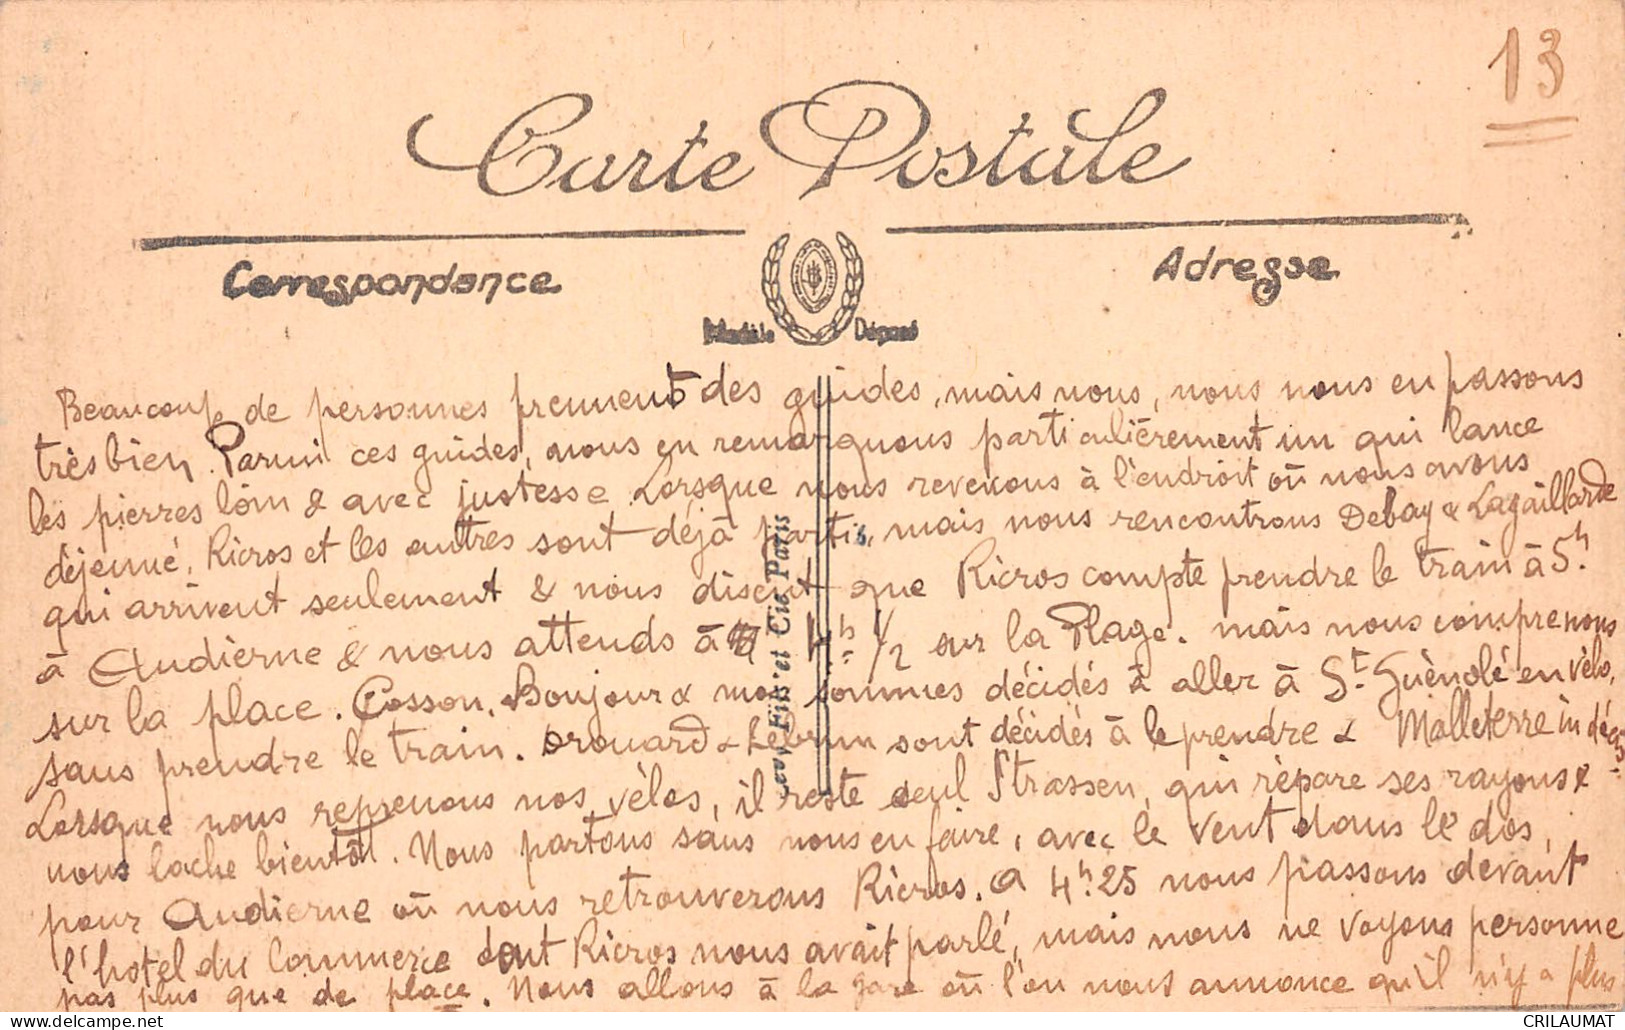 13
Carte Postale
Correspondance
Adresse
Modèle Déposé
Beaucoup de personnes prennent des guides, mais nous, nous nous en passons
très bien. Parmi ces guides, nous en remarquons particulièrement un qui lance
les pierres loin & avec justesse. Lorsque nous revenons à l'endroit où nous avons
déjeuné, Ricros et les autres sont déjà partis, mais nous rencontrons Debay & Lagaillarde
qui arrivent seulement & nous disent que Ricros compte prendre le train à 5h
à Audierne & nous attends à 4h 1/2 sur la Plage. mais nous comprenons
sur la place. Cosson, Boujour & moi sommes décidés à aller à St Guènolé en vélo,
sans prendre le train. Drouard & Lebrun sont décidés à le prendre & Malleterre indécis.
Lorsque nous reprenons nos vélos, il reste seul Strassen, qui répare ses rayons &
nous lache bientôt. Nous partons sans nous en faire, avec le vent dans le dos,
pour Audierne où nous retrouverons Ricros. A 4h.25 nous passons devant
l'hotel du Commerce dont Ricros nous avait parlé, mais nous ne voyons personne
pas plus que de place. Nous allons à la gare où l'on nous annonce qu'il n'y a plus
Fils et Cie Paris
CRILAUMAT